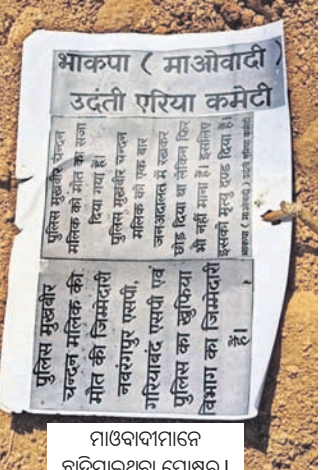 भाकपा ( माओवादी )
उदंती एरिया कमेटी
पुलिस मुखबीर चन्दन
मलिक को मौत का सजा
दिया गया है।
पुलिस मुखबीर चन्दन
मलिक को एक बार
जनअदालत में रखकर
छोड़ दिया था लेकिन फिर
भी नहीं माना है। इसलिए
इसको मृत्यु दण्ड दिया है।
भाकपा (माओवादी) उदंती एरिया कमेटी
पुलिस मुखबीर
चन्दन मलिक की
मौत की जिम्मेदारी
नवरंगपुर एसपी,
गरियाबंद एसपी एवं
पुलिस का खुफिया
विभाग का जिम्मेदारी
है।
ମାଓବାଦୀମାନେ
ଛାଡ଼ିଯାଇଥିବା ପୋଷ୍ଟର।